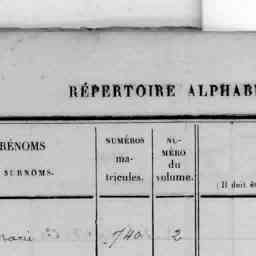 RÉPERTOIRE ALPHAB
RÉNOMS
SURNOMS.
NUMÉROS
ma-
tricules.
NU-
MÉRO
du
volume.
(Il doit ê
740 2